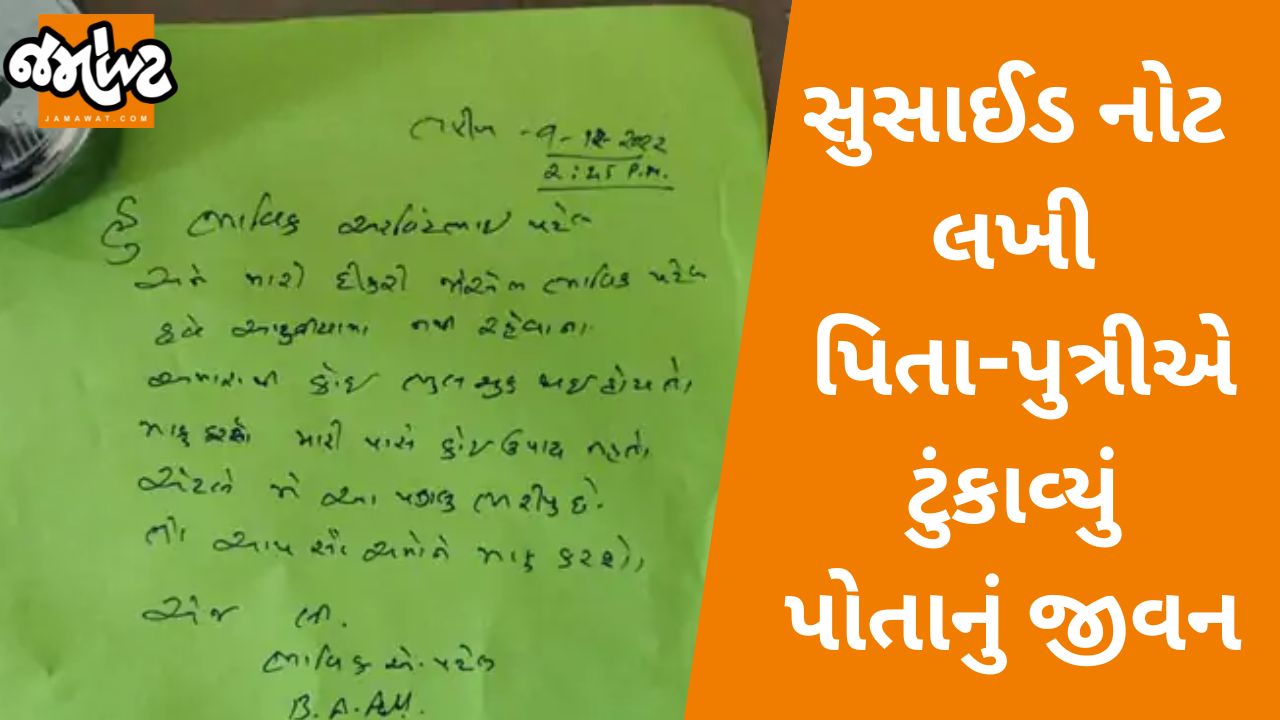 જમાવટ
JAMAWAT.COM
તારીખ - 9-12-2022
2:45 P.M.
હું ભાવિક અરવિંદભાઇ પટેલ
અને મારી દીકરી ભાવિક પટેલ
હવે આ દુનીયામા નથી રહેવાના
અમારાથી કોઇ ભુલચુક થઇ હોય તો
માફ કરશો મારી પાસે કોઇ ઉપાય નહતો
એટલે મે આ પગલુ ભરીયુ છે.
તો આપ સૌ અમોને માફ કરશો
એજ લી.
ભાવિક એ. પટેલ
સુસાઈડ નોટ
લખી
પિતા-પુત્રીએ
ટુંકાવ્યું
પોતાનું જીવન